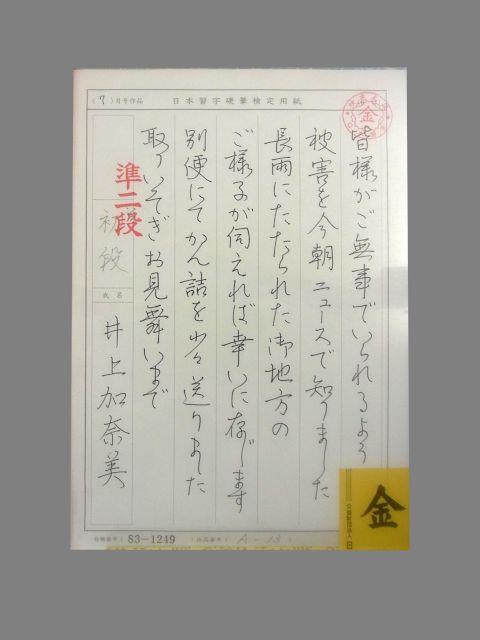 (7)月号作品
日本習字硬筆検定用紙
金
皆様がご無事でいられるよう
被害を今朝ニュースで知りました
長雨にたたられた御地方の
ご様子が伺えれば幸いに存じます
別便にてかん詰を少々送りました
取りいそぎお見舞いまで
準二段
初段
氏名
井上加奈美
金
公益財団法人 日
83-1249
A-15